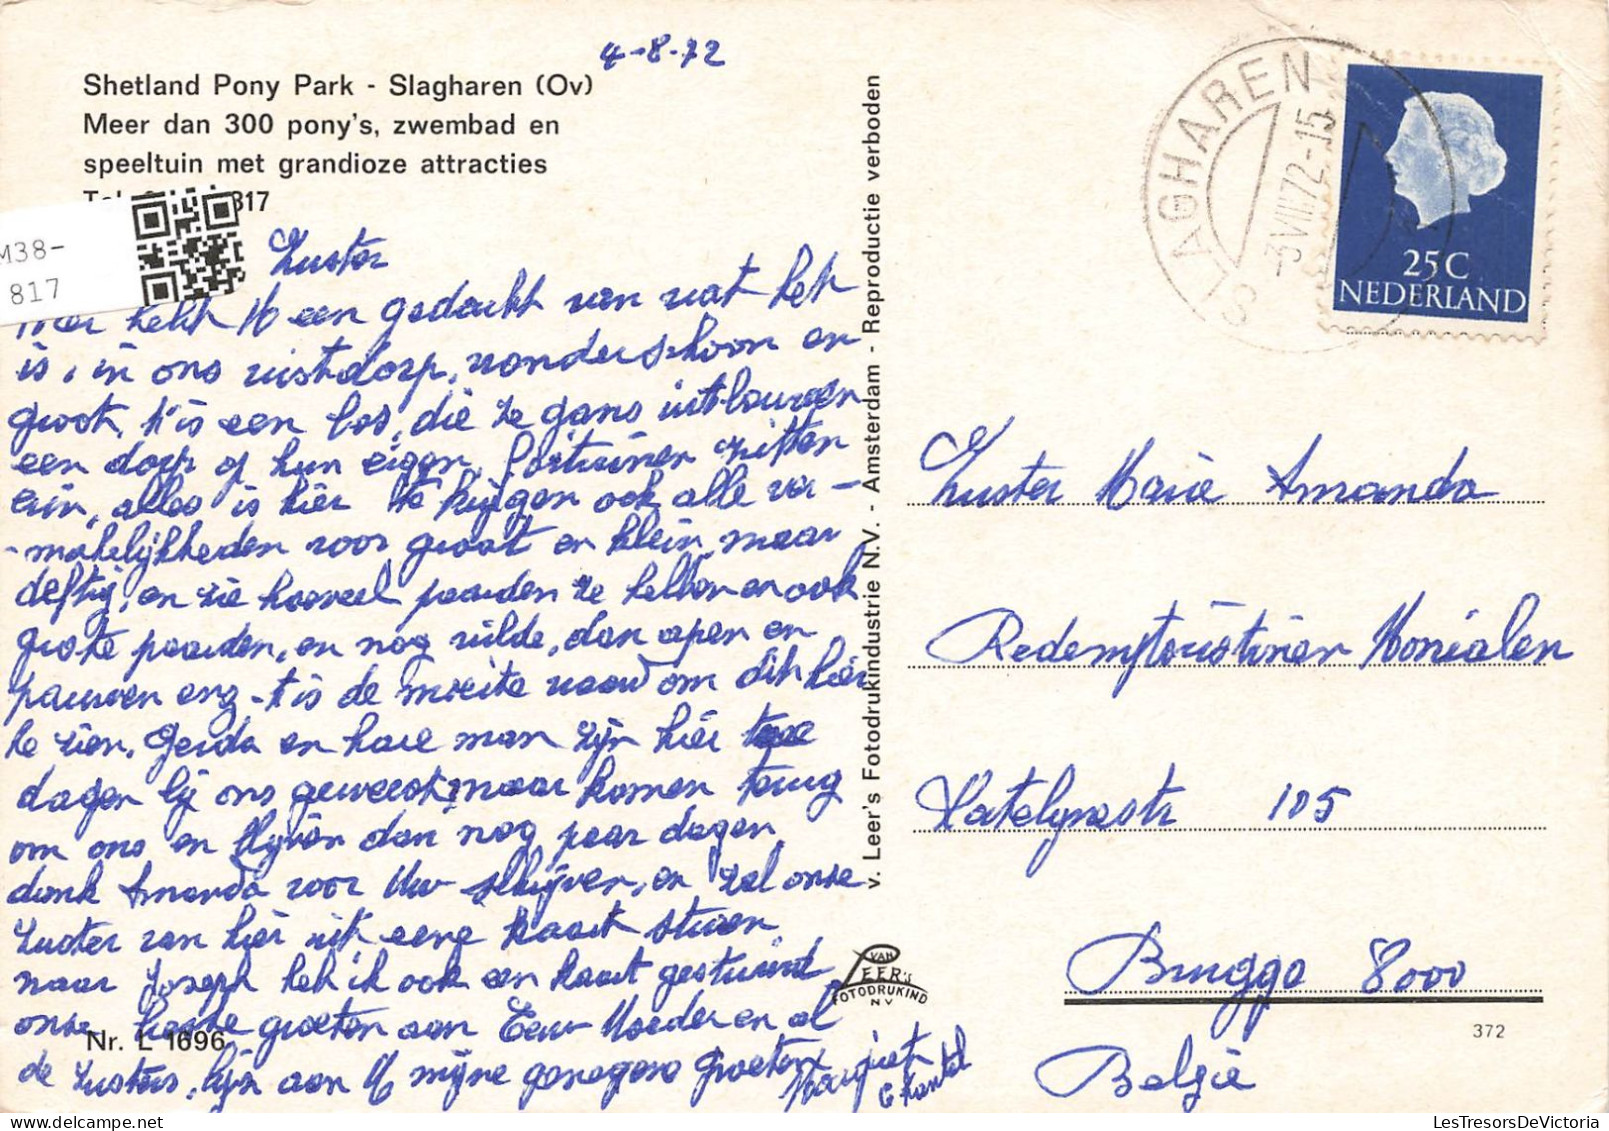 4-8-72
Shetland Pony Park - Slagharen (Ov)
Meer dan 300 pony's, zwembad en
speeltuin met grandioze attracties
817
M38-
817
Zuster
Hier hebt U een gedacht van wat het
is, in ons rustdorp, wonderschoon en
groot, t'is een bos, die ze gans uitbouwen
een dorp op hun eigen, fortuinen zitten
erin, alles is hier te krijgen ook alle ver-
-makelijkheden voor groot en klein, maar
deftig, en zie hoeveel paarden ze hebben en ook
grote paarden, en nog wilde, dan apen en
pauwen enz - t is de moeite waard om dit hier
te zien. Gerda en hare man zijn hier twee
dagen bij ons geweest, maar komen terug
om ons en blijven dan nog paar dagen,
dank Amanda voor Uw schrijven, en zal onze
Zuster van hier uit eene kaart sturen,
naar Joseph heb ik ook een kaart gestuurd
onze beste groeten aan Eerw Moeder en al
de Zusters, bijz aan U mijne genegene Groeten
Margriet
Chantal
Nr. L 1696
v. Leer's Fotodrukindustrie N.V. - Amsterdam - Reproductie verboden
VAN
LEER'S
FOTODRUKIND
NV
SLAGHAREN
-3.VIII72-15
25C
NEDERLAND
Zuster Marie Amanda
Redemptoristinen Monialen
Katelynestr 105
Brugge 8000
België
372
LesTresorsDeVictoria.com